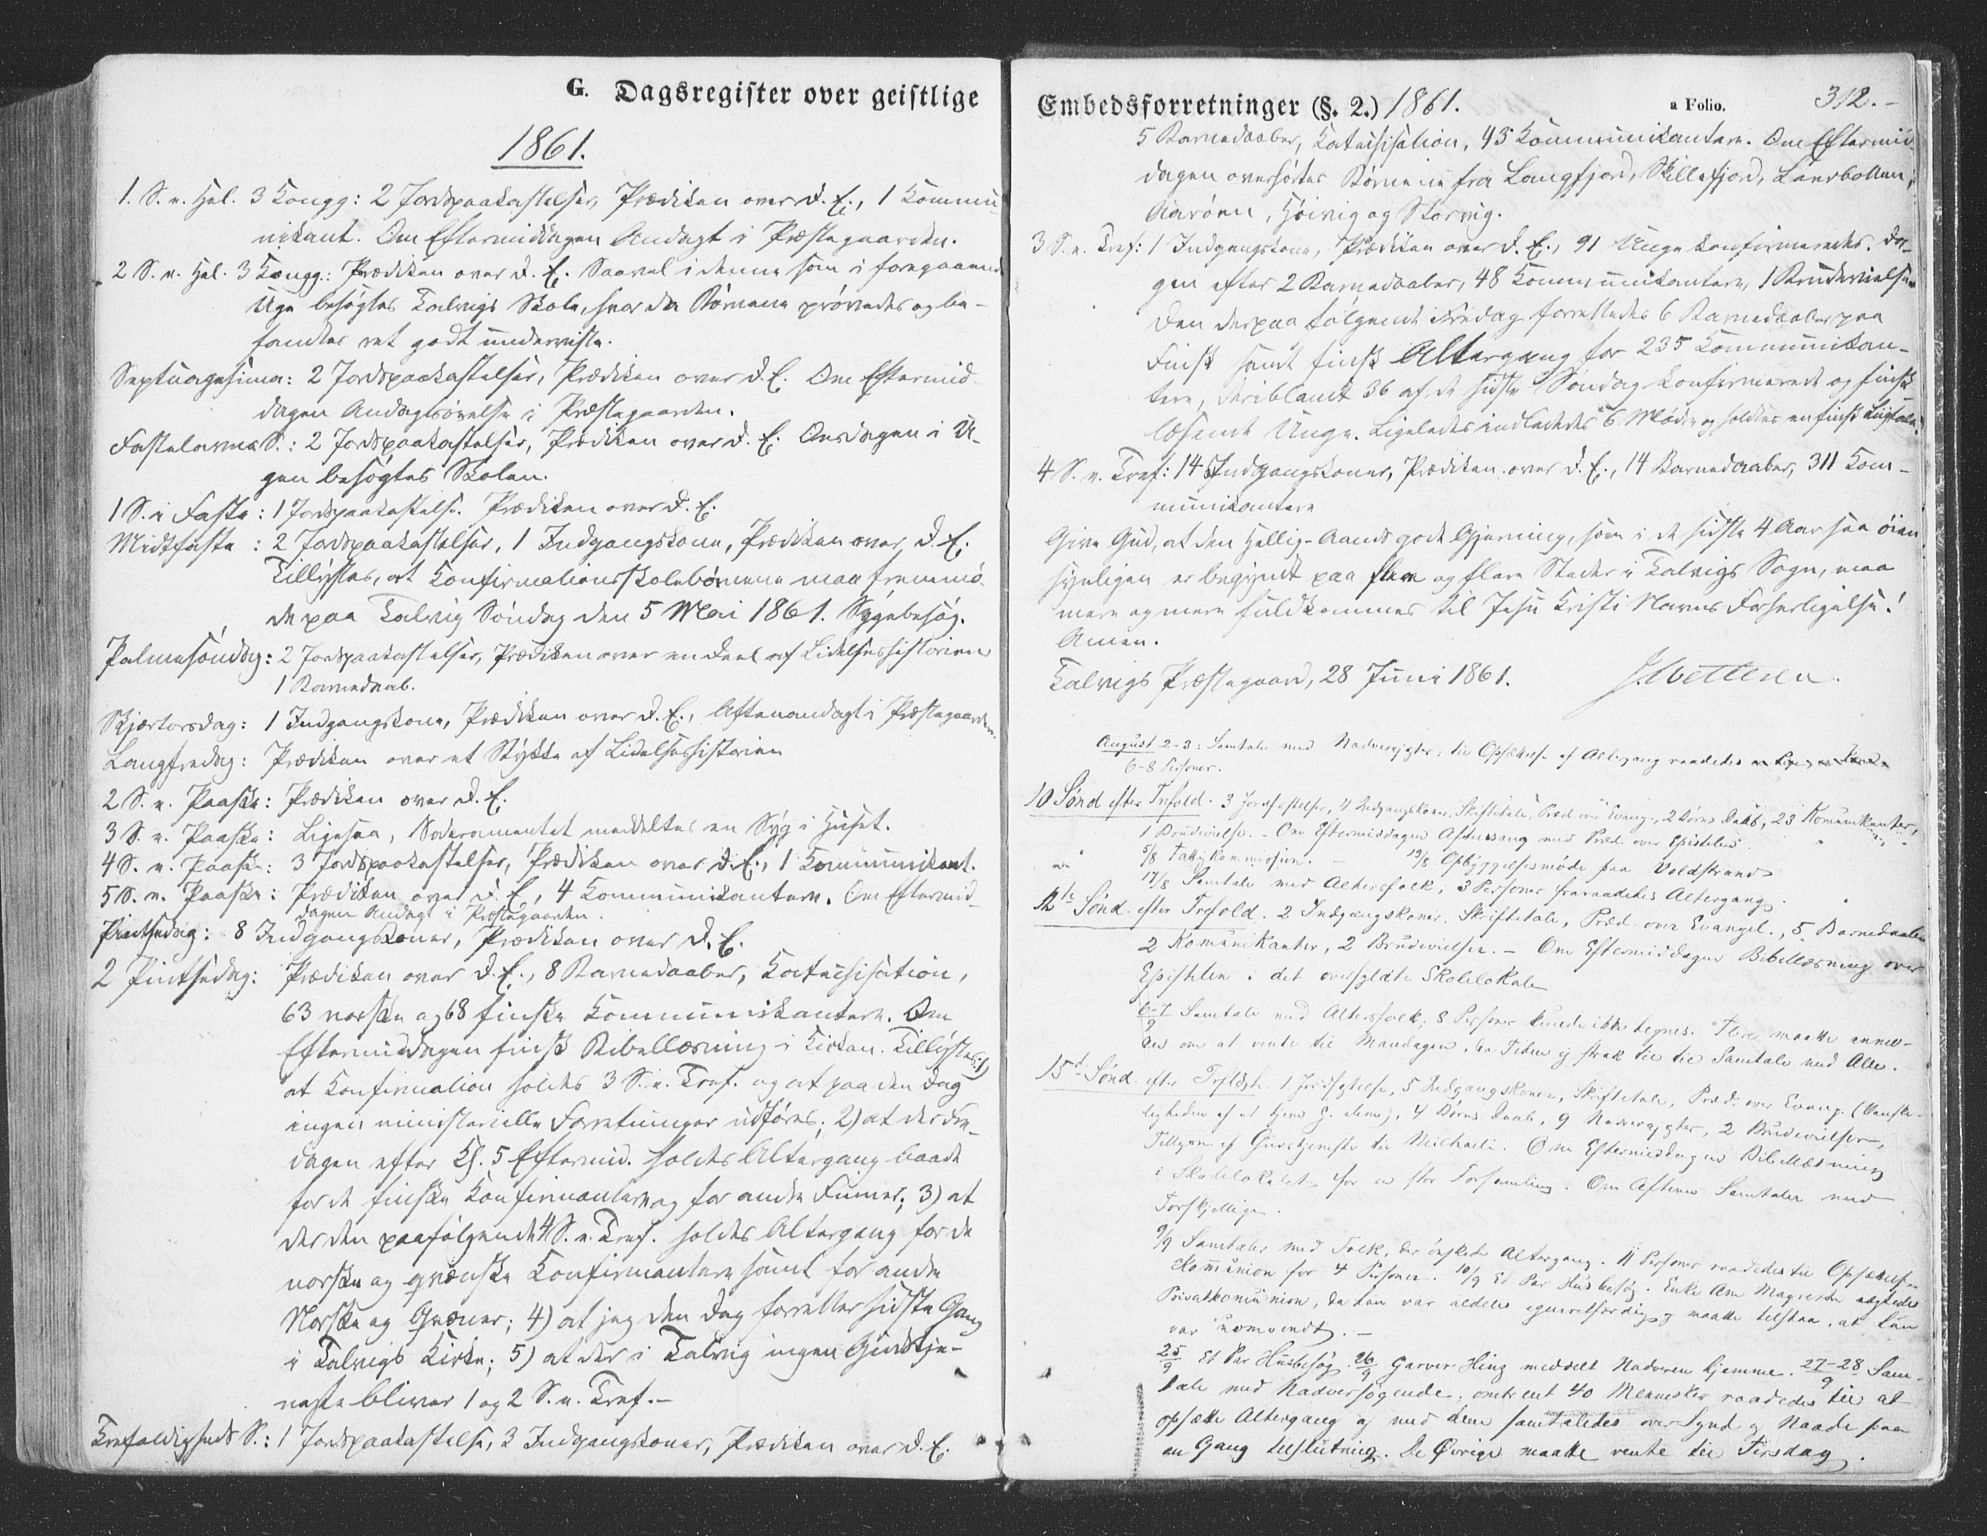 G. Dagsregister over geistlige
1861.
1. S. e. Hel. 3 Kongg: 2 Jordspaakastelser, Prædiken over d. E., 1 Kommu-
nikant. Om Eftermiddagen Andagt i Præstegaarden.
2 S. e. Hel. 3 Kongg.: Prædiken over d. E. Saavel i denne som i foregaaende
Uge besøgtes Talvigs Skole, hvor da Børnene prøvedes og be-
fandtes ret godt underviste.
Septuagesima: 2 Jordspaakastelser, Prædiken over d. E. Om Eftermid-
dagen Andagtsøvelse i Præstegaarden.
Fastelavns S.: 2 Jordspaakastelser, Prædiken over d. E. Onsdagen i U-
gen besøgtes Skolen.
1 S. i Faste: 1 Jordspaakastelse. Prædiken over d. E.
Midtfaste: 2 Jordspaakastelser, 1 Indgangskone, Prædiken over d. E.
Tillystes, at Konfirmationsskolebørnene maa fremmø-
de paa Talvig Søndag den 5 Mai 1861. Sygebesøg.
Palmesøndag: 2 Jordspaakastelser, Prædiken over en Deel af Lidelseshistorien
1 Barnedaab.
Skjærtorsdag: 1 Indgangskone, Prædiken over d. E., Aftenandagt i Præstegaarden.
Langfredag: Prædiken over et Stykke af Lidelseshistorien
2 S. e. Paaske: Prædiken over d. E.
3 S. e. Paaske: Ligesaa, Sakramentet meddeltes en Syg i Huset.
4 S. e. Paaske: 3 Jordspaakastelser, Prædiken over d. E., 1 Kommunikant.
5 S. e. Paaske: Prædiken over d. E., 4 Kommunikantere. Om Eftermid-
dagen Andagt i Præstegaarden.
Pintsedag: 8 Indgangskoner, Prædiken over d. E.
2 Pintsedag: Prædiken over d. E., 8 Barnedaaber, Katechisation,
63 norske og 68 finske Kommunikantere. Om
Eftermiddagen finsk Bibellæsning i Kirken. Tillystes 1)
at Konfirmation holdes 3 S. e. Tref. og at paa den Dag
ingen ministerielle Forretninger udføres; 2) at der Fre-
dagen efter Kl. 5 Eftermid. holdes Altergang baade
for de finske Konfirmantere og for andre Finner; 3) at
der den paafølgende 4 S. e. Tref. holdes Altergang for de
norske og qvænske Konfirmantere samt for andre
Norske og Qvæner; 4) at jeg den Dag forretter sidste Gang
i Talvigs Kirke; 5) at der i Talvig ingen Gudstje-
neste bliver 1 og 2 S. e. Tref.-
Trefoldigheds S.: 1 Jordspaakastelse, 3 Indgangskoner, Prædiken over d. E.
Embedsforretninger (§. 2.) 1861. a Folio. 312.-
5 Barnedaaber, Katechisation, 43 Kommunikantere. Om Eftermid-
dagen overhørtes Børnene fra Langfjord, Skillefjord, Lerbotten,
Aarøen, Høivig og Storvig.
3 S. e. Tref: 1 Indgangskone, Prædiken over d. E., 91 Unge konfirmeredes. Da-
gen efter 2 Barnedaaber, 48 Kommunikantere, 1 Brudevielse
Den derpaa følgende Fredag forrettedes 6 Barnedaaber paa
Finsk samt finsk Altergang for 235 Kommunikan-
tere, deriblandt 36 af de sidste Søndag konfirmerede og finsk
læsende Unge. Ligeledes indlededes 6 Mødre og holdtes en finsk Ligtale.
4 S. e. Tref: 14 Indgangskoner, Prædiken over d. E., 14 Barnedaaber, 311 Kom-
munikantere
Give Gud, at den Hellig-Aands gode Gjerning, som i de sidste 4 Aar saa øien-
synligen er begyndt paa flere og flere Steder i Talvigs Sogn, maa
mere og mere fuldkommes til Jesu Kristi Navns Forherligelse!
Amen.
Talvigs Præstegaard, 28 Juni 1861.
August 2-3: Samtale med Nadvergjester; til Opsættelse af Altergang raadedes
6-8 Personer.
10 Sønd efter Trefold. 3 Jordfæstelser, 4 Indgangskoner, Skriftetale, Præd. over Evang., 2 Børns Daab, 23 Komunikanter,
1 Brudevielse. - Om Eftermiddagen Aftensang med Præd. over Epistelen.
5/8 Fattigkommission. - 13/8 Opbyggelsesmøde paa Voldstrand
17/8 Samtale med Altersfolk, 3 Personer fraraadedes Altergang.
12te Sønd. efter Trefold. 2 Indgangskoner, Skriftetale, Præd. over Evangel., 5 Barnedaaber
2 Komunikanter, 2 Brudevielser. - Om Eftermiddagen Bibellæsning over
Epistelen i det overfyldte Skolelokale
6-7/9 Samtale med Altersfolk; 8 Personer kunde ikke tegnes. Flere maatte anmo-
des om at vente til Mandagen, da Tiden ej strak til til Samtale med Alle.
15d Sønd. efter Trefoldgh. 1 Jordfæstelse, 5 Indgangskoner, Skriftetale, Præd. over Evang. (Vanske-
ligheden af at tjene G. alene), 4 Børns Daab, 9 Nadvergjester, 2 Brudevielser,
Tillysn. af Gudstjeneste til Michaeli. Om Eftermiddagen Bibellæsning
i Skolelokalet for en stor Forsamling. Om Aftenen Samtaler med
Forskjellige.
9/9 Samtaler med Folk, der ønskede Altergang. 11 Personer raadedes til Opsættelse.
Komunion for 4 Personer. 10/9 Et Par Husbesøg. Enke Ane nægtedes
Privatkomunion, da hun var aldeles egenretfærdig og maatte tilstaa, at hun
var uomvendt. -
25/9 Et Par Husbesøg. 26/9 Garver Hinz meddelt Nadveren hjemme. 27-28/9 Sam-
tale med Nadversøgende, omtrent 40 Mennesker raadedes til at
opsætte Altergang og med dem samtaledes over Synd og Naade paa
en Gang tilslutning. De Øvrige maatte vente til Tirsdag.